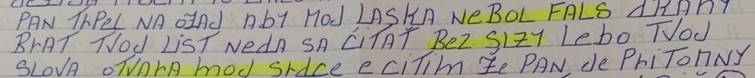 PAN ThPeL NA oZAJ Aby MoJ LASKA NeBOL FALS dRAHY
BrAT TVoJ LiST NedA SA CiTAT Bez SLZY Lebo TVoJ
SLOVA oTVArA moJ Srdce e CiTim Ze PAN Je PhiTOMNY